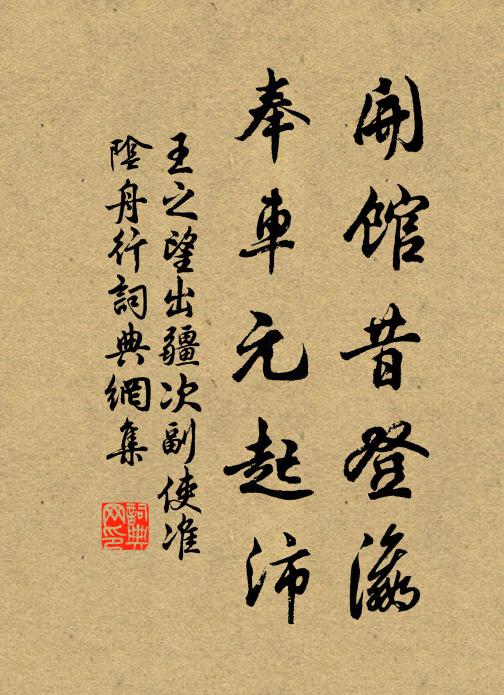 開館昔登瀛
奉車元起沛
王之望出疆次副使准
陰舟行詞典網集
詞典網印